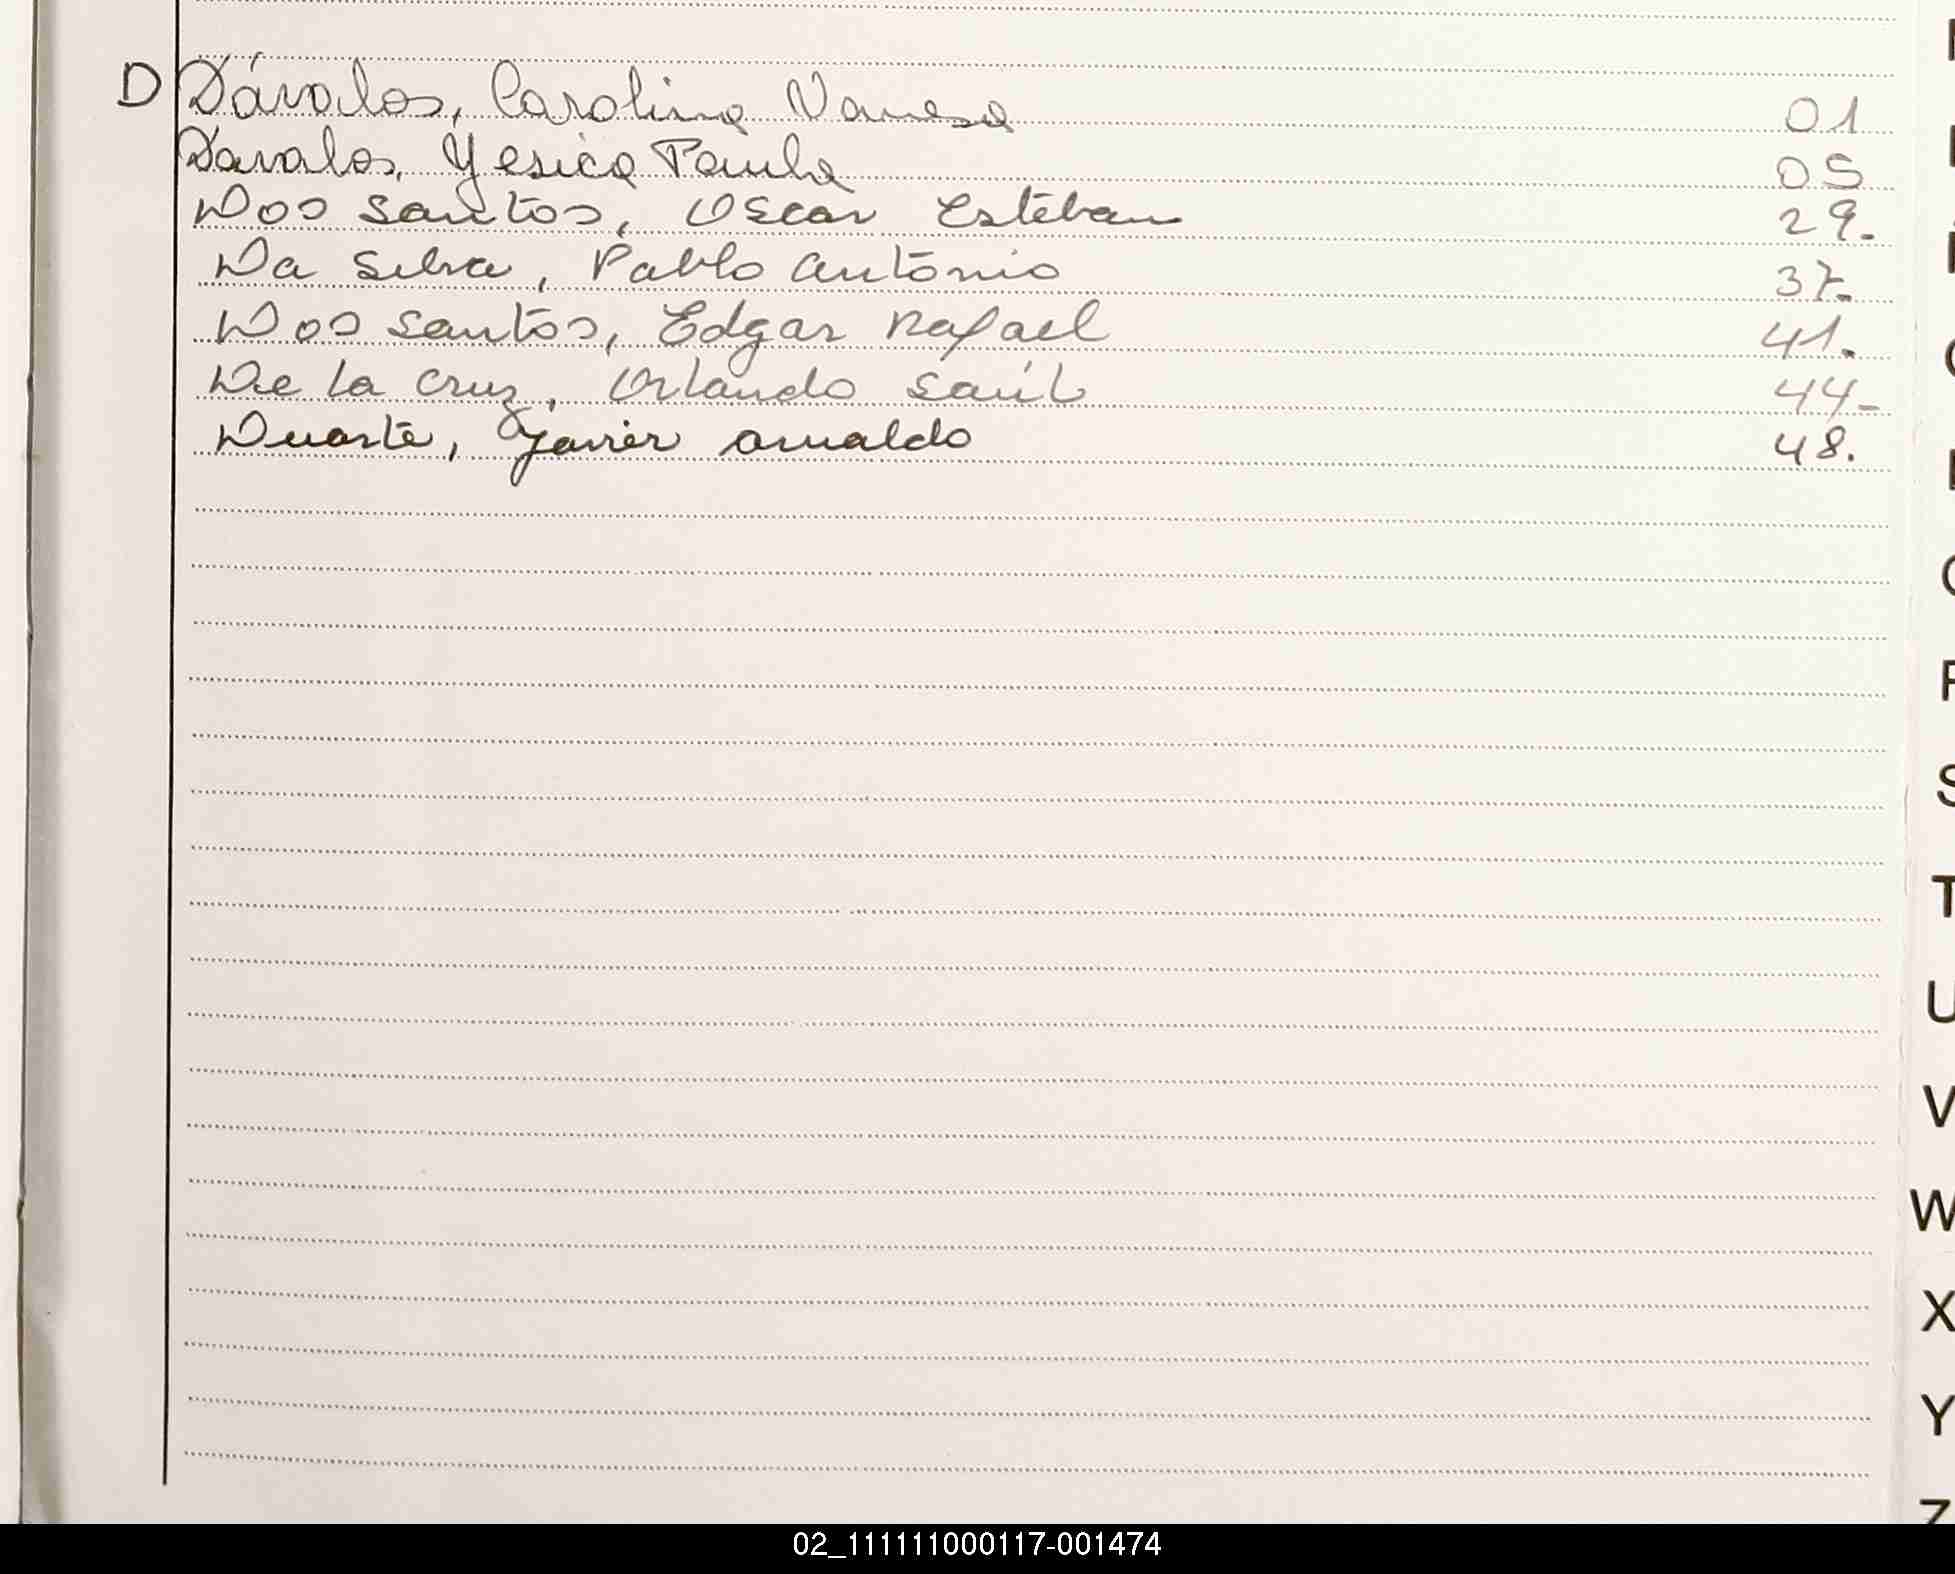 D Dávalos, Carolina Vanesa 01
Davalos, Yesica Paula 05
Dos Santos, Oscar Esteban 29.
Da Silva, Pablo Antonio 37.
Dos Santos, Edgar Rafael 41.
De la Cruz, Orlando Saúl 44-
Duarte, Javier Arnaldo 48.
S
T
U
V
W
X
Y
Z
02_111111000117-001474